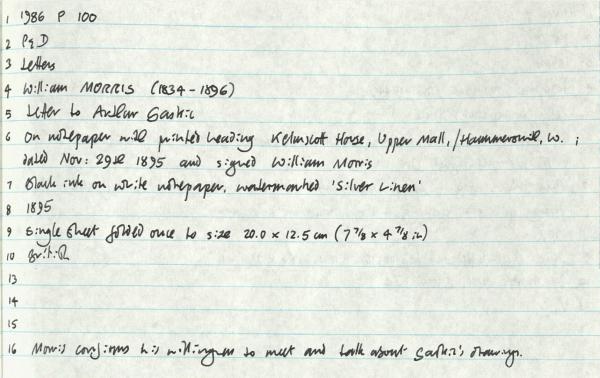 1 1986 P 100
2 P&D
3 Letters
4 William MORRIS (1834-1896)
5 Letter to Arthur Gaskin
6 On notepaper with printed heading Kelmscott House, Upper Mall, / Hammersmith, W. ;
dated Nov: 29th 1895 and signed William Morris
7 Black ink on white notepaper, watermarked 'Silver Linen'
8 1895
9 Single sheet folded once to size 20.0 x 12.5 cm (7 7/8 x 4 7/8 in)
10 British
13
14
15
16 Morris confirms his willingness to meet and talk about Gaskin's drawings.